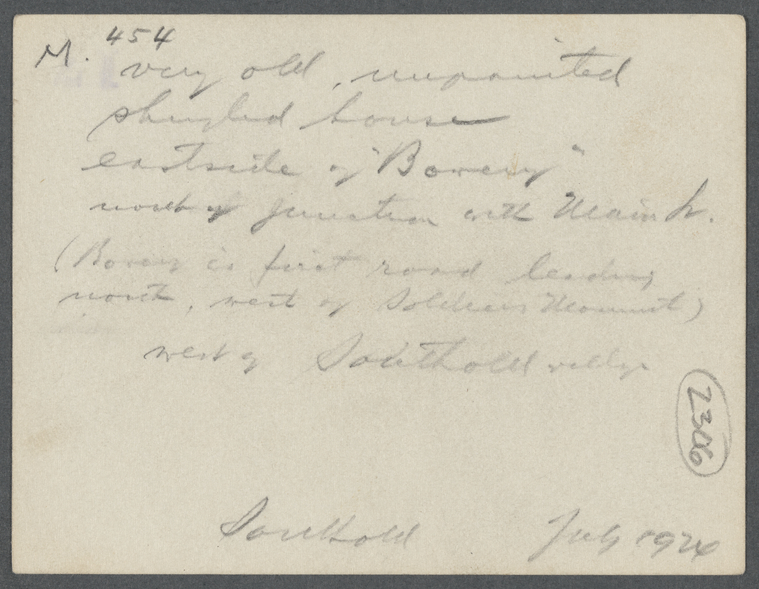 M. 454
very old, unpainted
shingled house
eastside of "Bowery"
north of junction with Main St.
(Bowery is first road leading
north, west of Soldiers Monument)
west of Southold village
2386
Southold July 1924